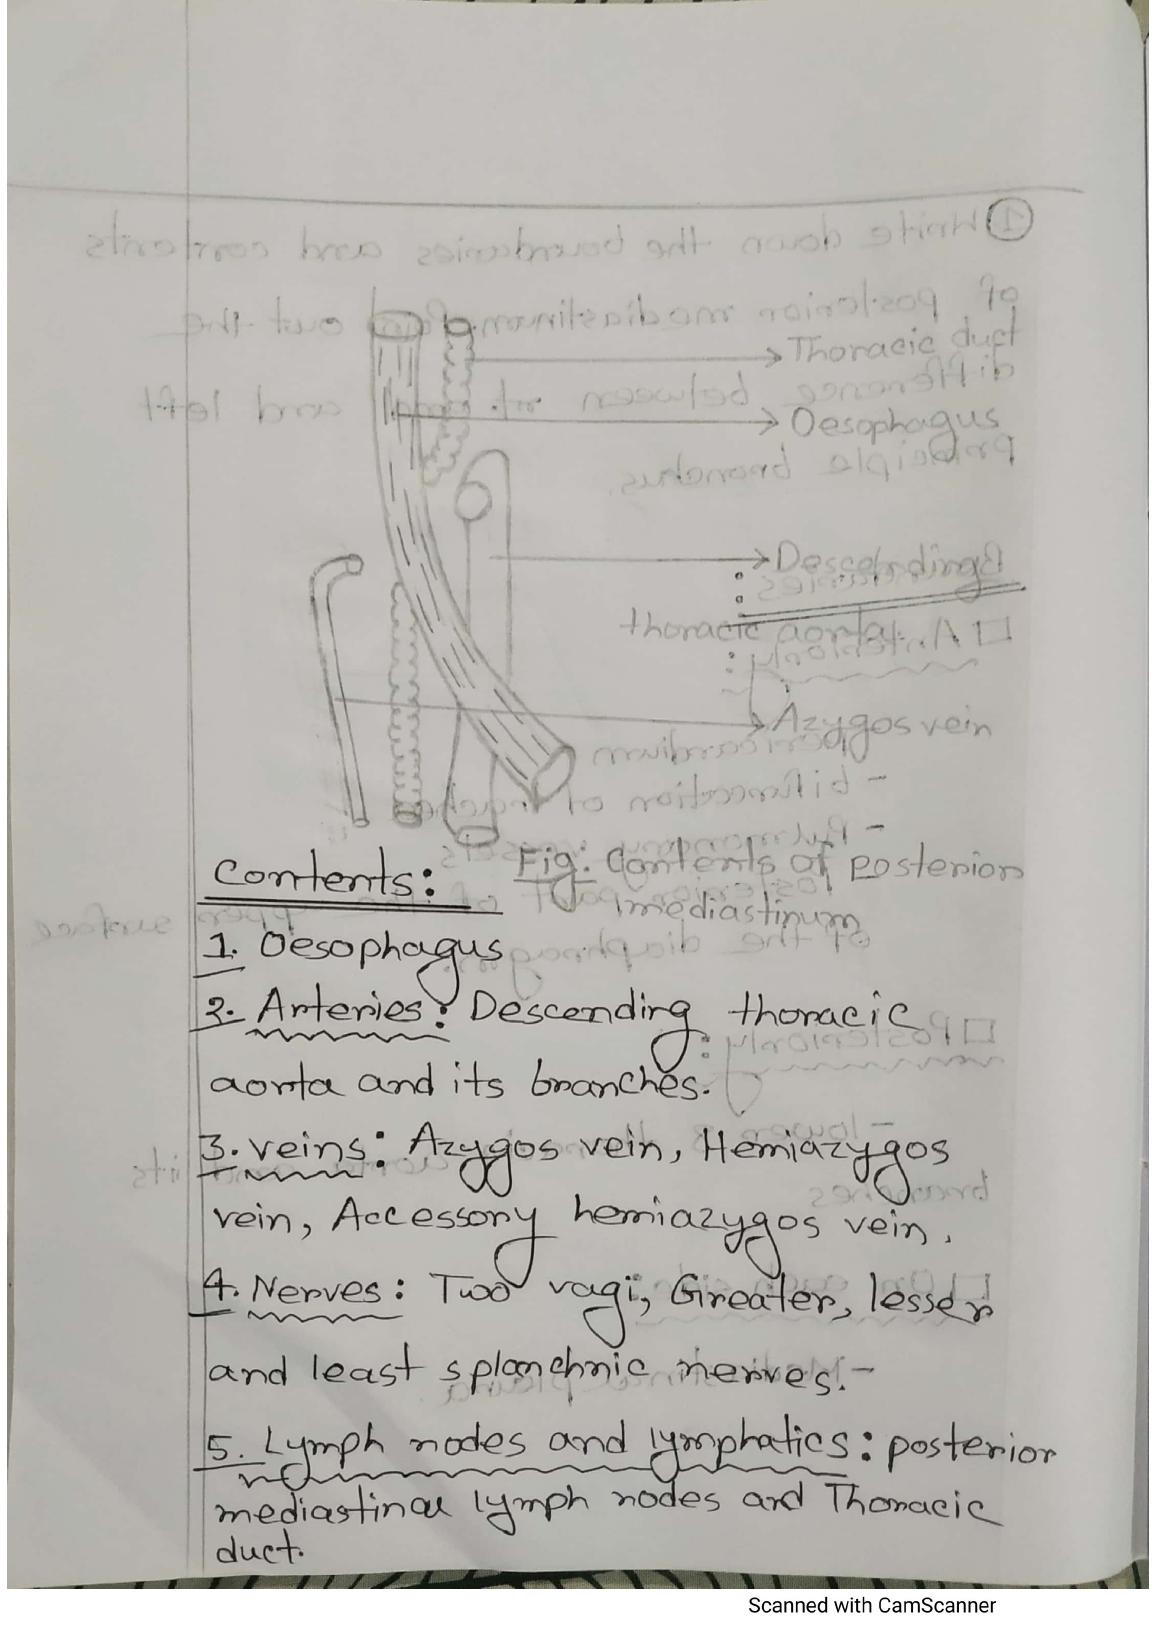 Thoracic duct
Oesophagus
Descending
thoracic aorta
Azygos vein
Fig: Contents of posterior
mediastinum
Contents:
1. Oesophagus
2. Arteries: Descending thoracic
aorta and its branches.
3. veins: Azygos vein, Hemiazygos
vein, Accessory hemiazygos vein.
4. Nerves: Two vagi, Greater, lesser
and least splanchnic nerves.
5. Lymph nodes and lymphatics: posterior
mediastinal lymph nodes and Thoracic
duct.
Scanned with CamScanner